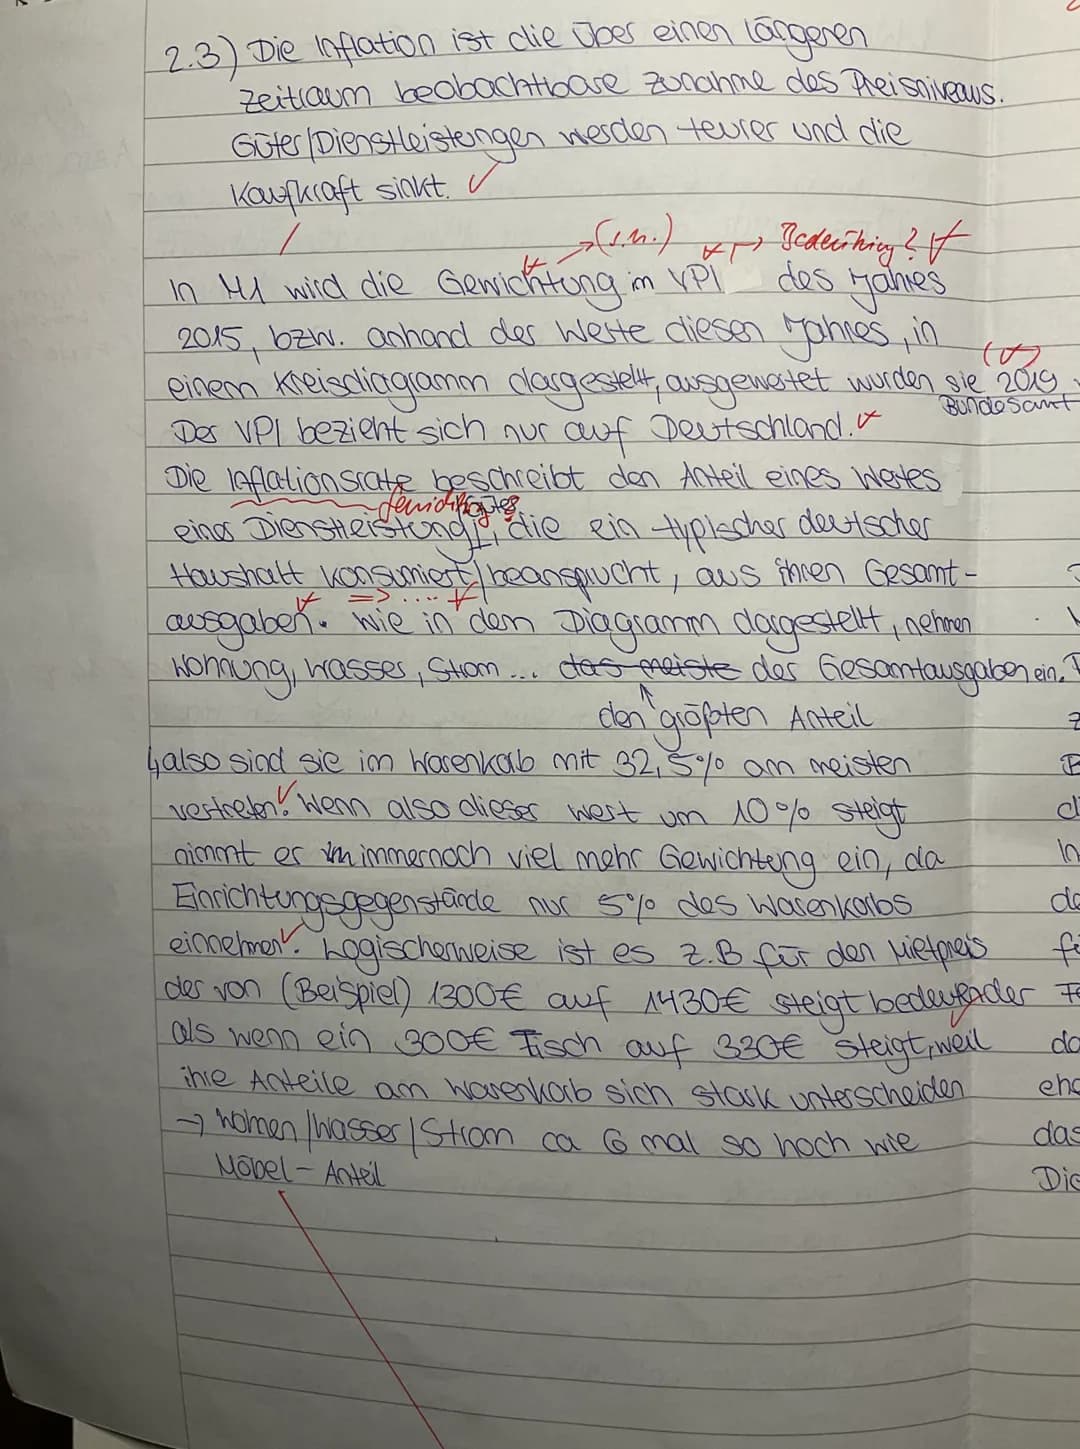 2.3) Die Inflation ist die über einen längeren
Zeitraum beobachtbare Zunahme des Preisniveaus.
Güter/Dienstleistungen werden teurer und die
Kaufkraft sinkt. ✓
(s.u.) → Bedeutung?
In M1 wird die Gewichtung im VPI des Jahres
2015, bzw. anhand der Werte diesen Jahres, in
einem Kreisdiagramm dargestellt, ausgewertet wurden sie 2019
Bundesamt
Der VPI bezieht sich nur auf Deutschland.
Die Inflationsrate beschreibt den Anteil eines Wertes
einer Dienstleistung, die ein typischer deutscher
Haushalt konsumiert/beansprucht, aus ihren Gesamt-
=> ....
ausgaben. Wie in dem Diagramm dargestellt, nehmen
Wohnung, Wasser, Strom... das meiste der Gesamtausgaben ein.
den größten Anteil
↳ also sind sie im Warenkorb mit 32,5% am meisten
vertreten. Wenn also dieser Wert um 10% steigt
nimmt er immernoch viel mehr Gewichtung ein, da
Einrichtungsgegenstände nur 5% des Warenkorbs
einnehmen. Logischerweise ist es z.B für den Mietpreis
der von (Beispiel) 1300€ auf 1430€ steigt bedeutender
als wenn ein 300€ Tisch auf 330€ steigt, weil
ihre Anteile am Warenkorb sich stark unterscheiden
→ Wohnen/Wasser/Strom ca 6 mal so hoch wie
Möbel-Anteil
da
ehe
das
Die